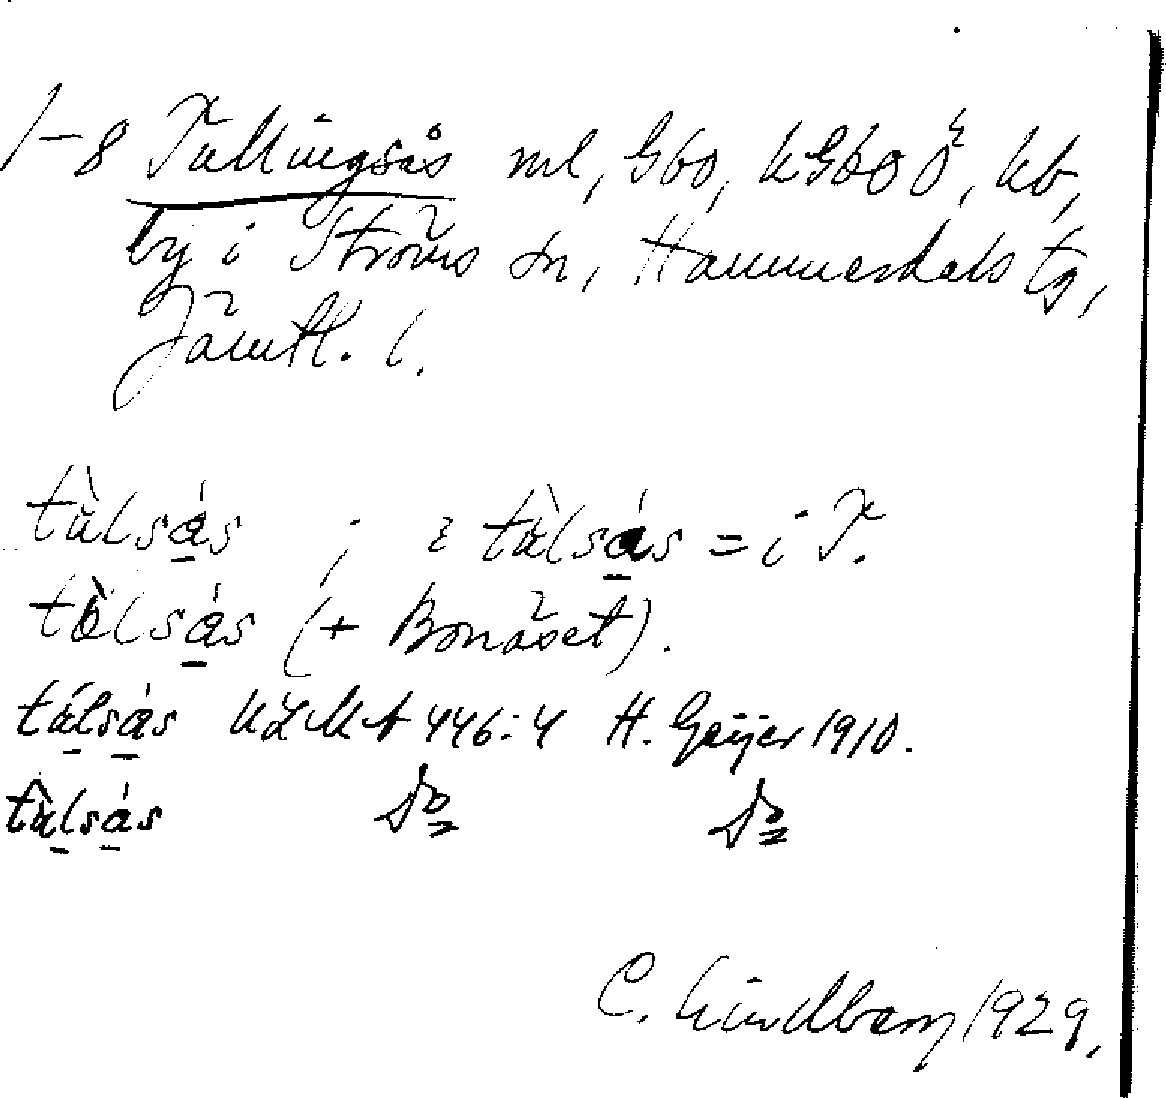 1-8 Tullingsås ml, Gbo, kGboö, kb,
by i Ströms sn, Hammerdals tg,
Jämtl. l.
tùlsás ; i tùlsás = i T.
tòlsás (+ Bonäset).
túlsás ULMA 446:4 H. Geijer 1910.
tùlsás Do Do
C. Lindberg 1929.